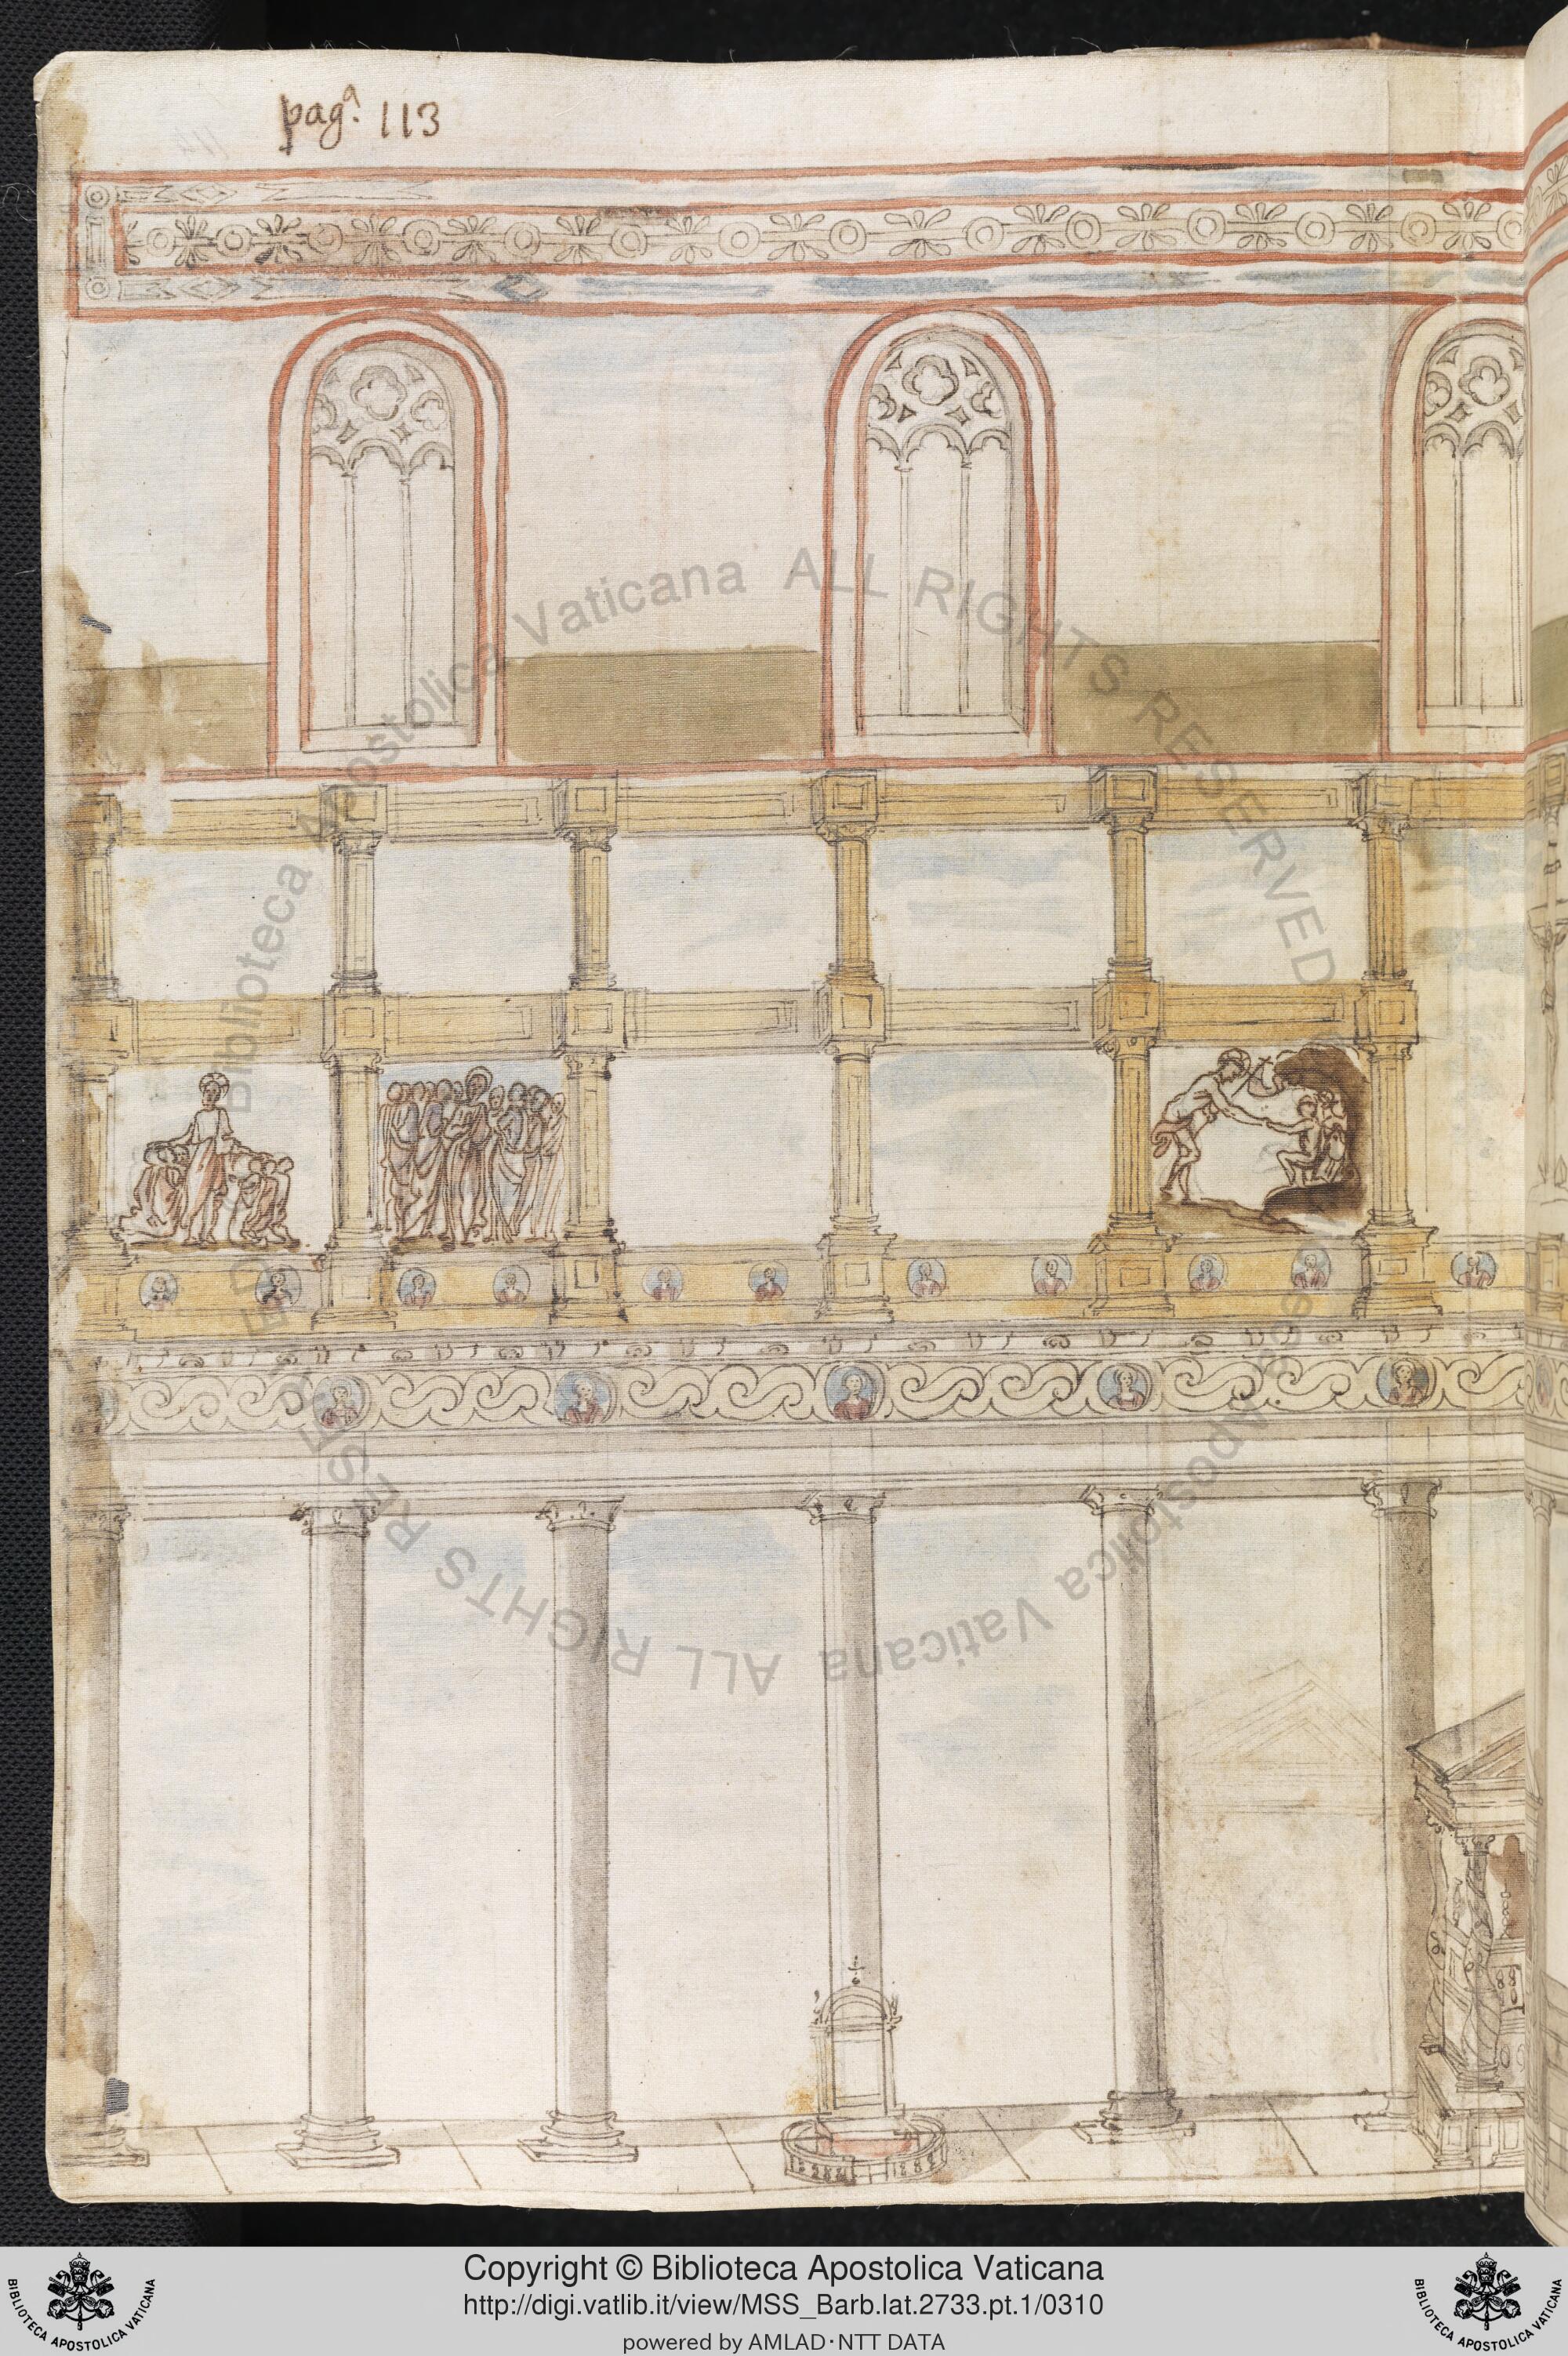 pagᵃ. 113
Biblioteca Apostolica Vaticana ALL RIGHTS RESERVED
Biblioteca Apostolica Vaticana ALL RIGHTS RESERVED
Copyright © Biblioteca Apostolica Vaticana
http://digi.vatlib.it/view/MSS_Barb.lat.2733.pt.1/0310
powered by AMLAD·NTT DATA
BIBLIOTECA APOSTOLICA VATICANA
BIBLIOTECA APOSTOLICA VATICANA